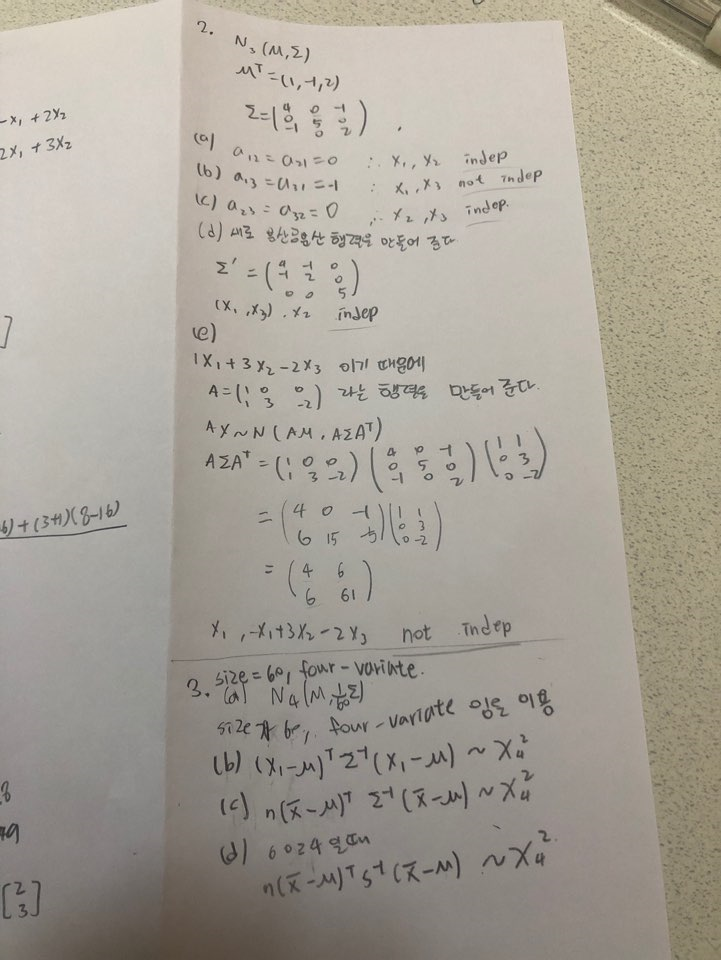 -x₁ + 2x₂
2x₁ + 3x₂
6) + (3+1)(8-16)
8
49
[2
3]
2.
N₃ (μ, Σ)
μᵀ = (1, -1, 2)
Σ = (4 0 -1
0 5 0
-1 0 2)
(a) a₁₂ = a₂₁ = 0 ∴ x₁, x₂ indep
(b) a₁₃ = a₃₁ = -1 : x₁, x₃ not indep
(c) a₂₃ = a₃₂ = 0 ∴ x₂, x₃ indep.
(d) 새로 분산공분산 행렬을 만들어 준다
Σ' = (4 -1 0
-1 2 0
0 0 5)
(x₁, x₃), x₂ indep
(e)
1x₁ + 3x₂ - 2x₃ 이기 때문에
A = (1 0 0
1 3 -2) 라는 행렬을 만들어 준다.
AX ~ N (Aμ, AΣAᵀ)
AΣAᵀ = (1 0 0
1 3 -2) (4 0 -1
0 5 0
-1 0 2) (1 1
0 3
0 -2)
= (4 0 -1
6 15 -5) (1 1
0 3
0 -2)
= (4 6
6 61)
x₁, -x₁ + 3x₂ - 2x₃ not indep
3. size = 60, four-variate.
(a) N₄ (μ, 1/60 Σ)
size 60, four-variate 임을 이용
(b) (x₁-μ)ᵀ Σ⁻¹ (x₁-μ) ~ χ₄²
(c) n(x̄-μ)ᵀ Σ⁻¹ (x̄-μ) ~ χ₄²
(d) 60≥4 일때
n(x̄-μ)ᵀ S⁻¹ (x̄-μ) ~ χ₄²